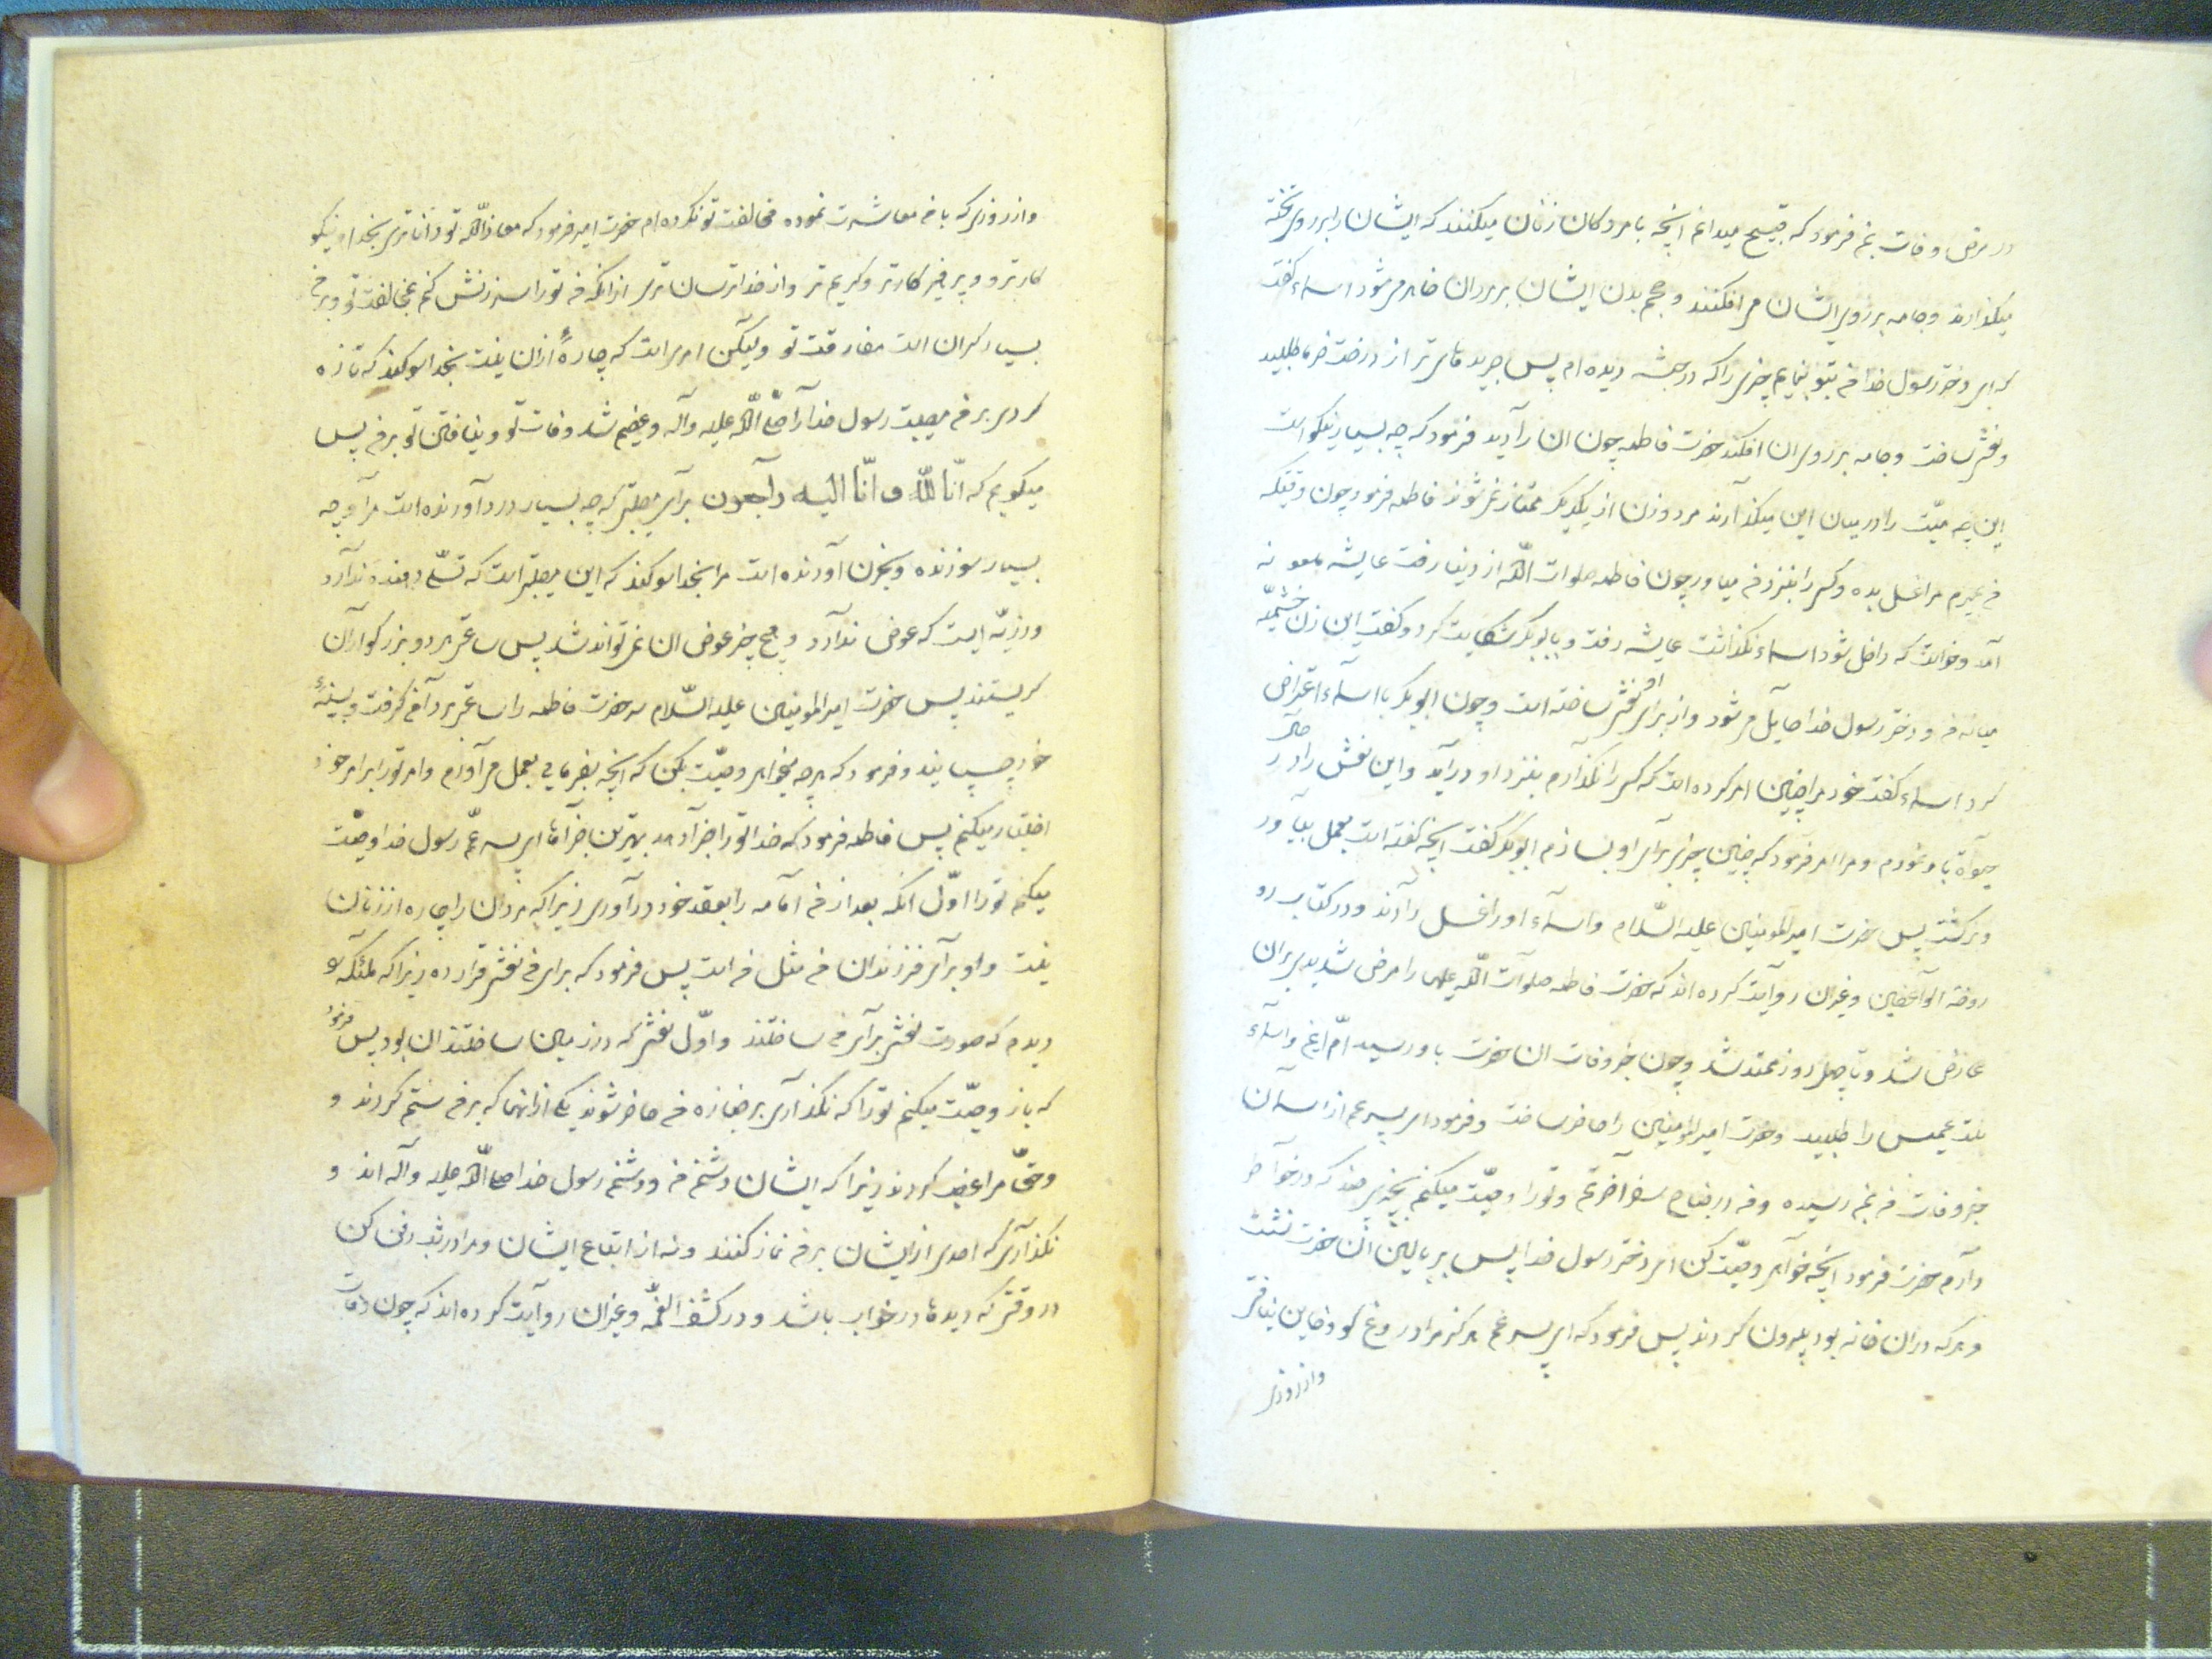 در مرض وفات بمن فرمود که قبیح میدانم آنچه با مردکان زنان میکنند که ایشان را بر روی تخته
میکذارند و جامه بر روی ایشان می افکنند و حجم بدن ایشان بر مردان ظاهر میشود اسماء کفت
که ای دختر رسول خدا من بتو بنمایم چیزی را که در حبشه دیده ام پس جریدهای تر از درخت خرما طلبید
و نعش ساخت و جامه بر روی ان افکند حضرت فاطمه چون ان را دید فرمود که چه بسیار نیکو است
این چه میّت را در میان این میکذارند مرد و زن از یکدیکر ممتاز نمیشوند فاطمه فرمود چون وقتیکه
من بمیرم مرا غسل بده و کسی را بنزد من میاور چون فاطمه صلوات اللّه از دنیا رفت عایشه ملعونه
آمد و خواست که داخل شود اسماء نکذاشت عایشه رفت و بابوبکر شکایت کرد و کفت این زن خثعمیّه
میانه من و دختر رسول خدا حایل میشود و از برای او نعش ساخته است و چون ابوبکر با اسماء اعتراض
کرد اسماء کفت خود مرا چنین امر کرده است که کسی را نکذارم بنزد او درآید و این نعش را در حال
حیوة باو نمودم و مرا امر فرمود که چنین چیزی برای او بسازم ابوبکر کفت آنچه کفته است بعمل بیاور
و برکشت پس حضرت امیرالمومنین علیه السّلام و اسماء او را غسل دادند و در کتاب
روضة الواعظین و غیران روایت کرده اند که حضرت فاطمه صلوات اللّه علیها را مرض شدیدی
عارض شد و تا چهل روز ممتد شد و چون خبر وفات ان حضرت باو رسید امّ ایمن و اسماء
بنت عمیس را طلبید و حضرت امیرالمومنین را حاضر ساخت و فرمود ای پسر عم از اسمان
خبر وفات من بمن رسیده و من در جناح سفر آخرتم و تو را وصیّت میکنم بچیزی چند که در خاطر
دارم حضرت فرمود آنچه خواهی وصیّت کن ای دختر رسول خدا پس بر بالین ان حضرت نشست
و هر که دران خانه بود بیرون کردند پس فرمود که ای پسر عم هرکز مرا دروغ کو و خاین نیافتی
و از روزی
و از روزی که با من معاشرت نموده مخالفت تو نکرده ام حضرت امیر فرمود که معاذ اللّه تو داناتری بخدا و نیکو
کارتر و پرهیزکارتر و کریم تر و از خدا ترسان تری از انکه من تو را سرزنش کنم بمخالفت تو بر من
بسیار کران است مفارقت تو ولیکن امریست که چارهٔ ازان نیست بخدا سوکند که تازه
کردی بر من مصیبت رسول خدا را صلّی اللّه علیه وآله و عظیم شد وفات تو و نیافتن تو بر من پس
میکویم که انّا للّه و انّا الیه راجعون برای مصیبتی که چه بسیار درد آورنده است مرا و چه
بسیار سوزنده و بحزن آورنده است مرا بخدا سوکند که این مصیبتی است که تسلّی دهنده ندارد
و رزیّه ایست که عوض ندارد و هیچ چیز عوض ان نمیتواند شد پس ساعتی هر دو بزرکواران
کریستند پس حضرت امیرالمومنین علیه السّلام سر حضرت فاطمه را ساعتی بر دامن کرفت و بسینهٔ
خود چسپانید و فرمود که هر چه میخواهی وصیّت بکن که آنچه بفرمایی بعمل می آورم و امر تو را بر امر خود
اختیار میکنم پس فاطمه فرمود که خدا تو را جزا دهد بهترین جزاها ای پسر عمّ رسول خدا وصیّت
میکنم تو را اوّل آنکه بعد از من امامه را بعقد خود درآوری زیرا که مردان را چاره از زنان
نیست و او برای فرزندان من مثل من است پس فرمود که برای من نعشی قرار ده زیرا که ملئکه
دیدم که صورت نعش برای من ساختند و اوّل نعشی که در زمین ساختند ان بود پس فرمود
که باز وصیّت میکنم تو را که نکذاری بر جنازه من حاضر شوند یکی ازانها که بر من ستم کردند و
و حقّ مرا غصب کردند زیرا که ایشان دشمن من و دشمن رسول خدا صلی اللّه علیه وآله اند و
نکذاری که احدی از ایشان بر من نماز کنند و نه از اتباع ایشان و مرا در شب دفن کن
در وقتی که دیدها در خواب باشد و در کشف الغمّه و غیران روایت کرده اند که چون وفات